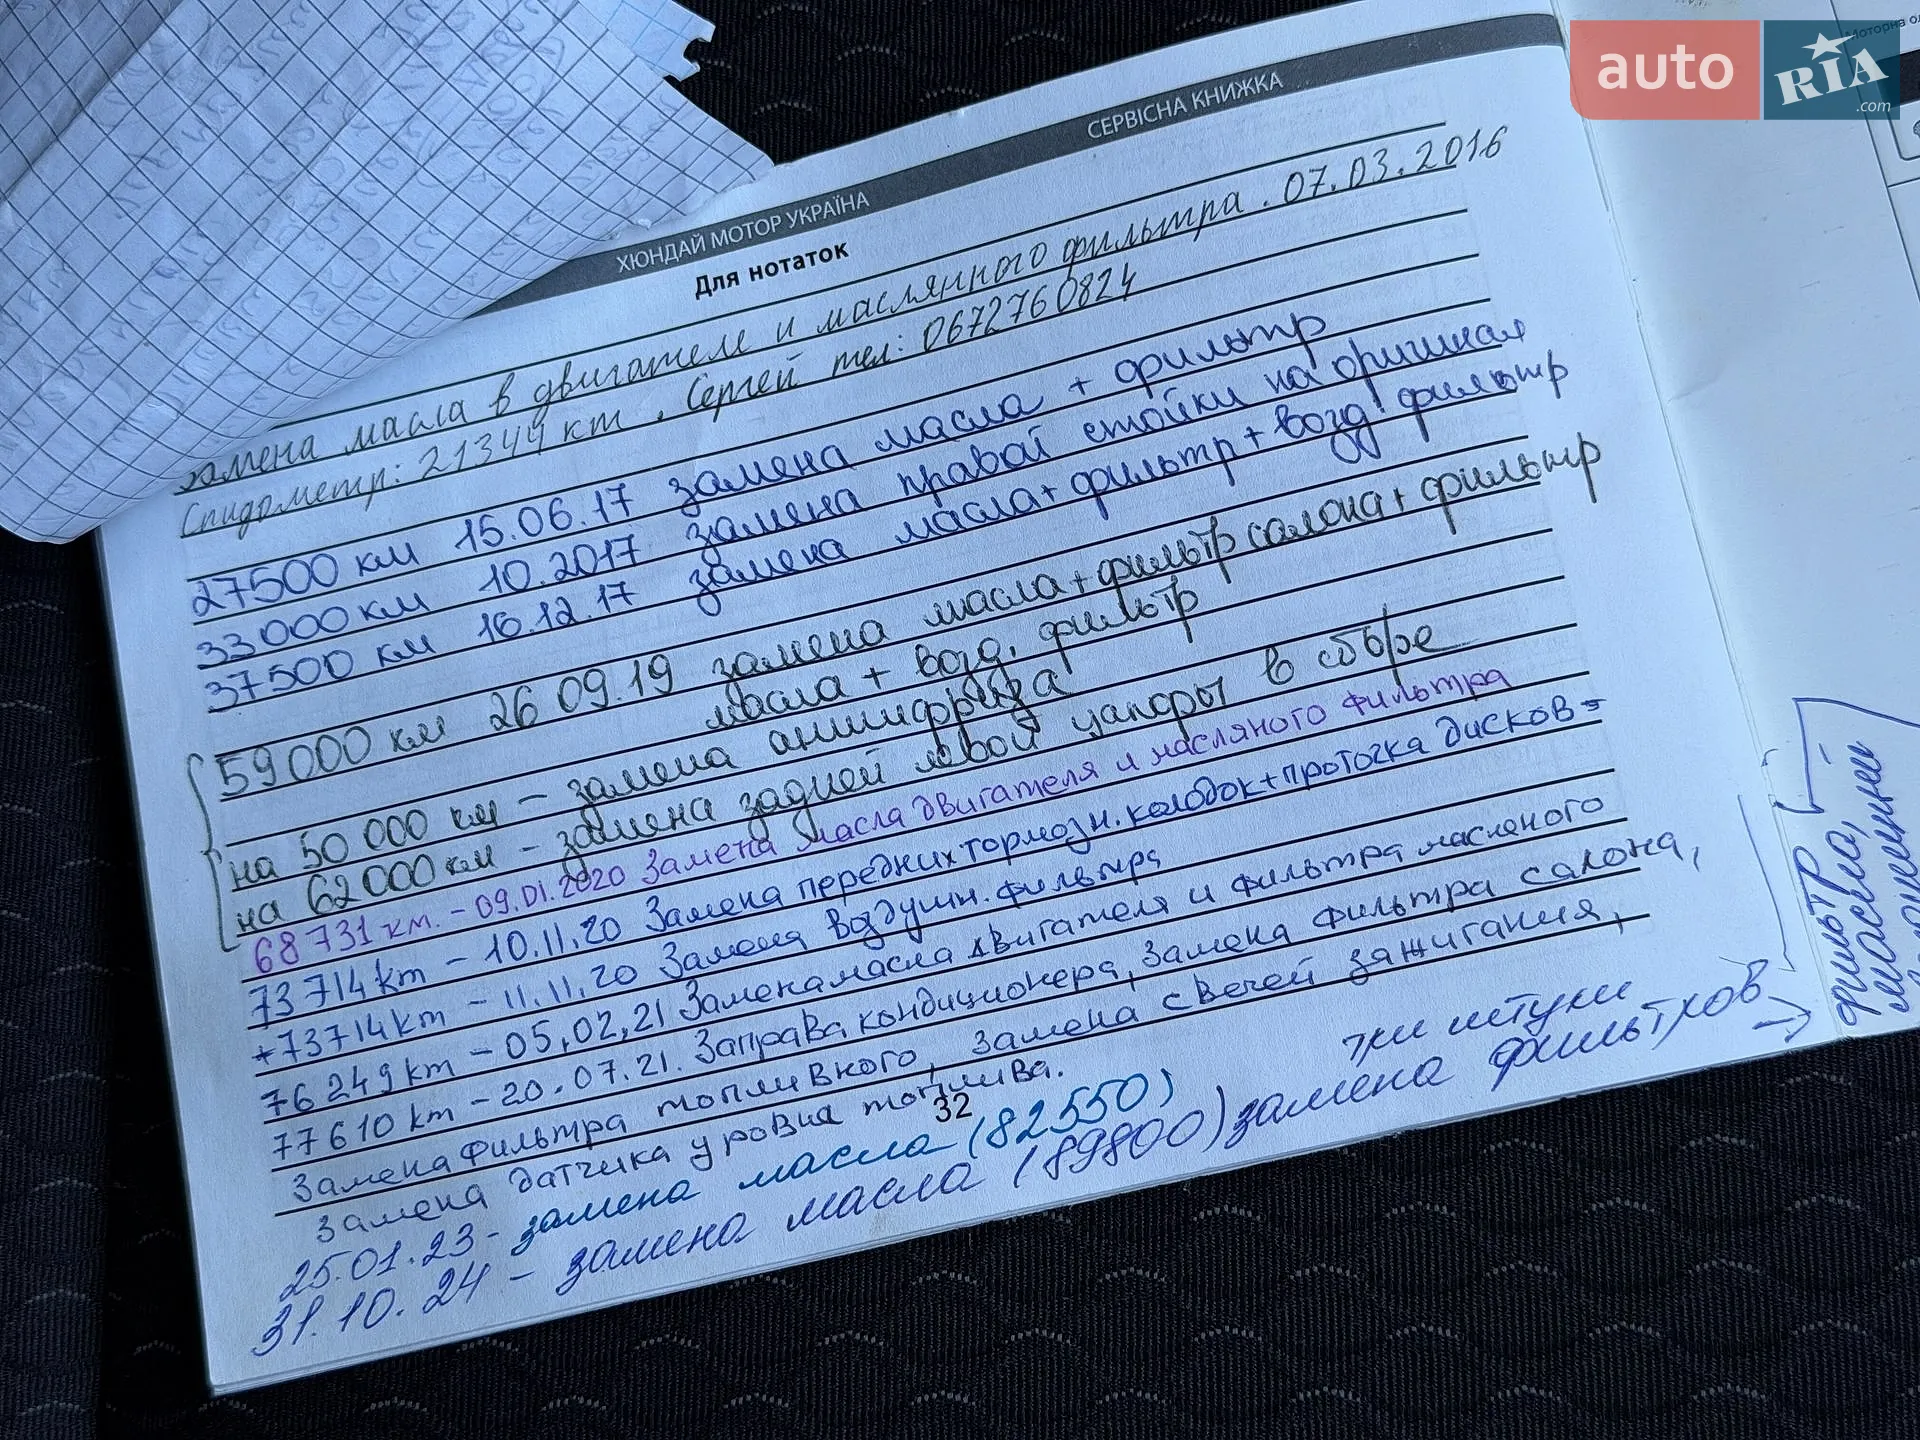 auto RIA .com
ХЮНДАЙ МОТОР УКРАЇНА СЕРВІСНА КНИЖКА
Для нотаток
замена масла в двигателе и маслянного фильтра. 07.03.2016
Спидометр: 21344 км. Сергей тел: 0672760824
27500 км 15.06.17 замена масла + фильтр
33000 км 10.2017 замена правой стойки на оригинал
37500 км 16.12.17 замена масла + фильтр + возд. фильтр
59000 км 26 09.19 замена масла + фильтр салона + фильтр
масла + возд. фильтр
на 50 000 км - замена антифриза
на 62 000 км - замена задней левой цапфы в сборе
68 731 км. - 09.01.2020 Замена масла двигателя и масляного фильтра
73 714 km - 10.11.20 Замена передних тормозн. колодок + проточка дисков
+73714 km - 11.11.20 Замена воздушн. фильтра
76 249 km - 05,02,21 Замена масла двигателя и фильтра масляного
77 610 km - 20.07.21. Заправа кондиционера, Замена фильтра салона,
Замена фильтра топливного, Замена свечей зажигания,
Замена датчика уровня топлива.
32
25.01.23 - замена масла (82550)
31.10.24 - замена масла (89800) замена фильтров →
три штуки
фильтр
масла,